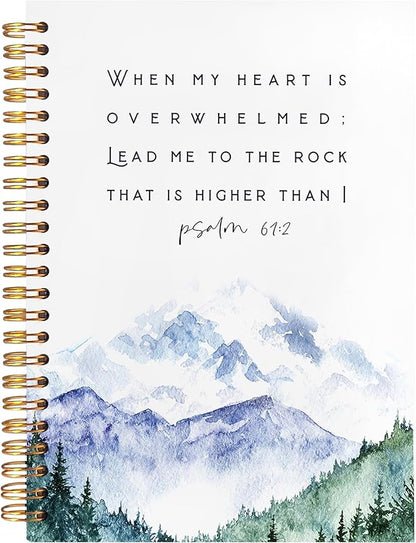 When my heart is
overwhelmed;
Lead me to the rock
that is higher than I
psalm 61:2